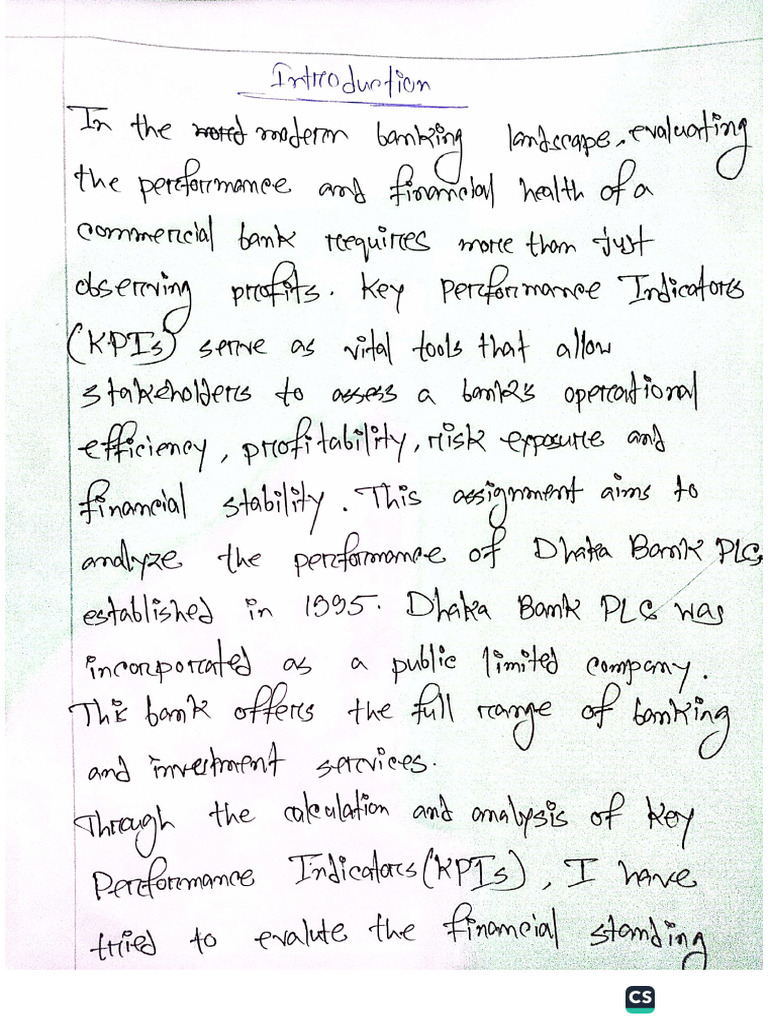 Introduction
In the modern banking landscape, evaluating
the performance and financial health of a
commercial bank requires more than just
observing profits. Key Performance Indicators
(KPIs) serve as vital tools that allow
stakeholders to assess a bank's operational
efficiency, profitability, risk exposure and
financial stability. This assignment aims to
analyze the performance of Dhaka Bank PLC,
established in 1995. Dhaka Bank PLC was
incorporated as a public limited company.
This bank offers the full range of banking
and investment services.
Through the calculation and analysis of Key
Performance Indicators (KPIs), I have
tried to evalute the financial standing
CS